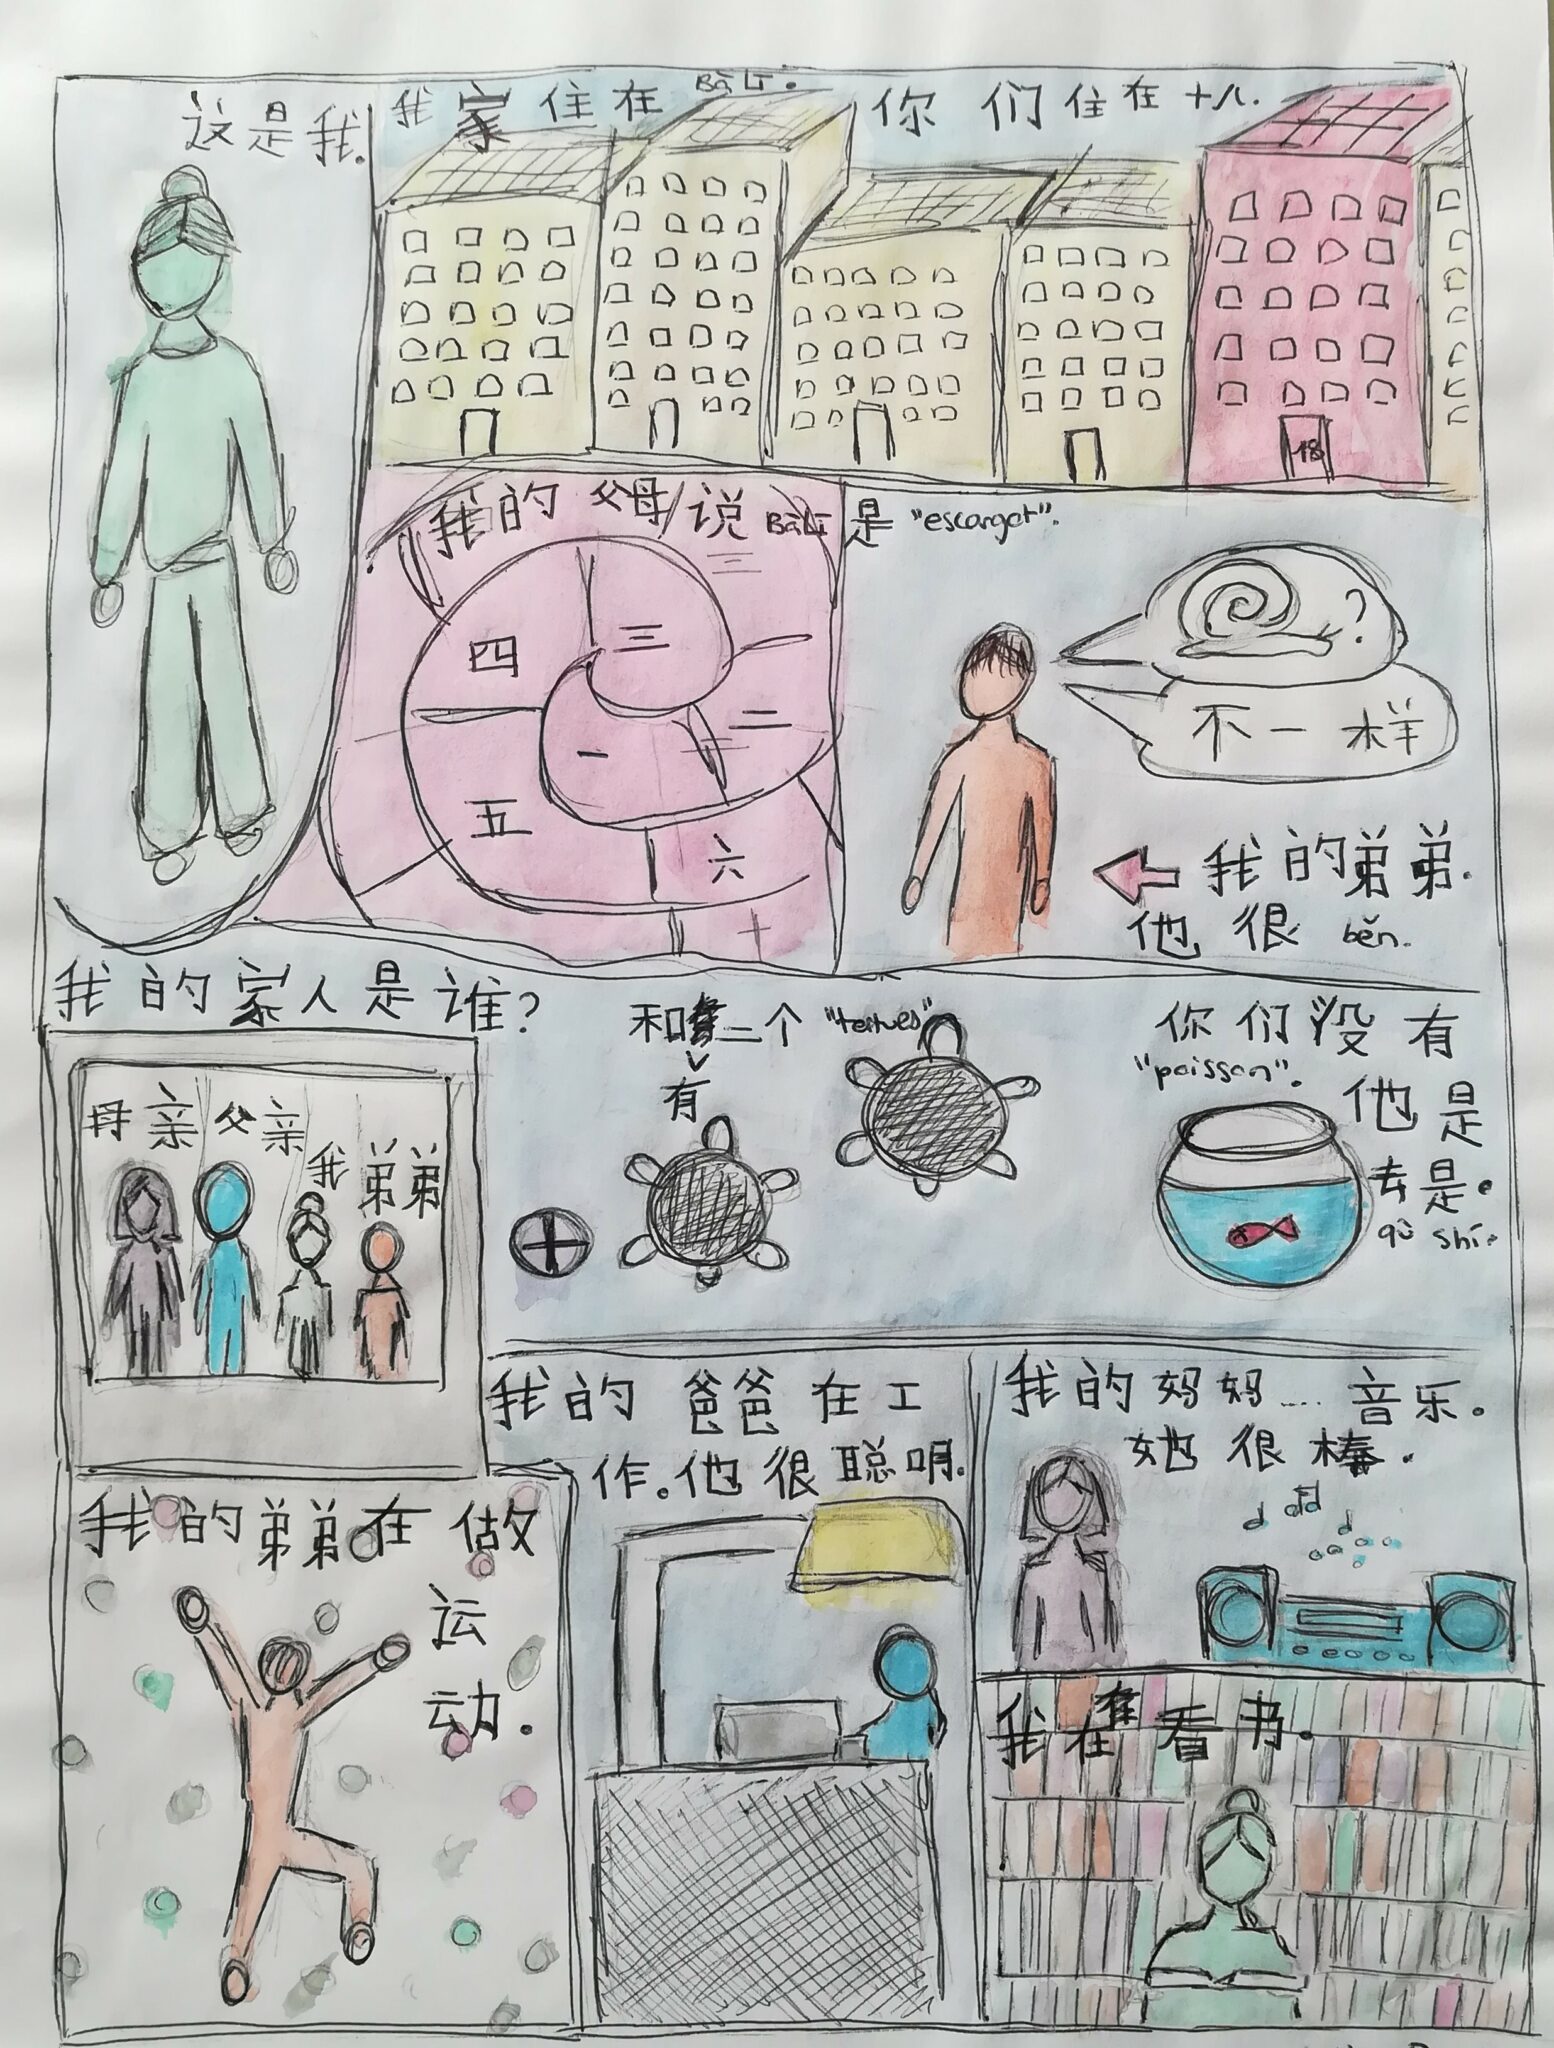 这是我.
我家住在 Bālí.
你们住在十八.
18
我的父母/说 Bālí 是 "escargot".
一
二
三
四
五
六
十
?
不一样
我的弟弟.
他很 běn.
我的家人是谁?
母亲
父亲
我
弟弟
和 二个 "tortues"
有
你们没有
"poisson".
他是
去是.
qù shí.
我的爸爸在工
作.他很聪明.
我的妈妈.... 音乐.
她很棒.
我的弟弟在做
运
动.
我在看书.